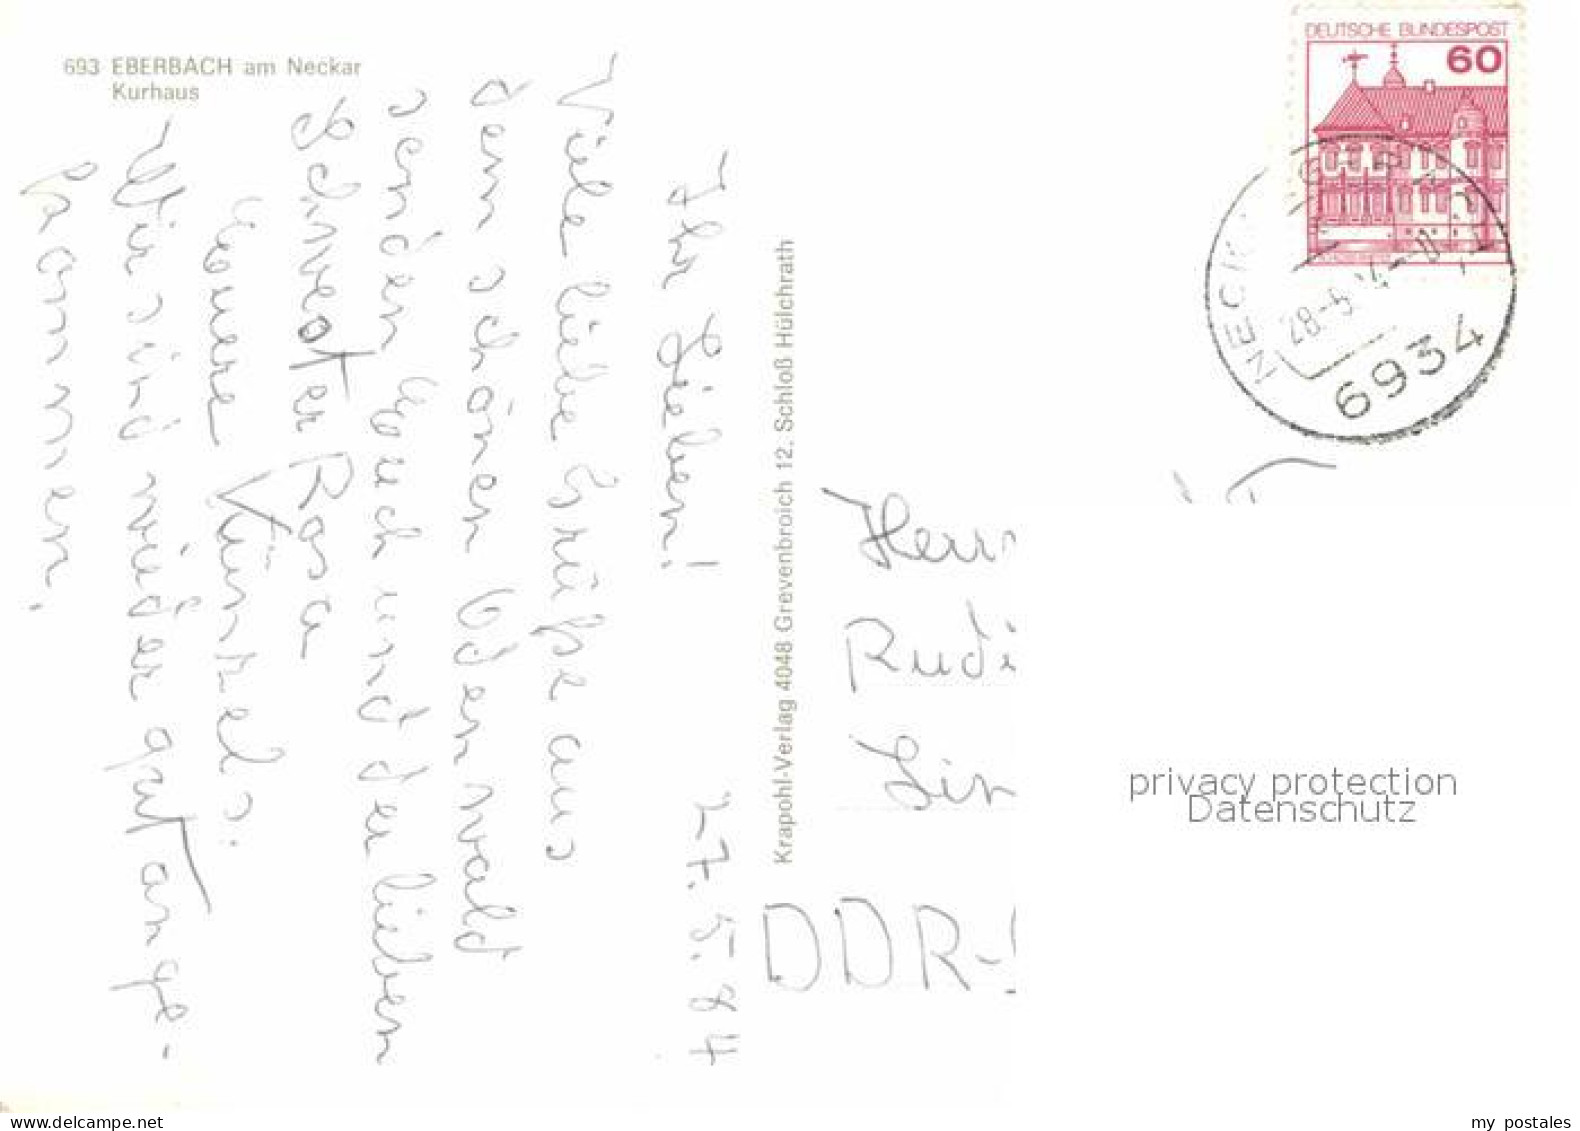 693 EBERBACH am Neckar
Kurhaus
27.5.84
Ihr Lieben!
Viele liebe Grüße aus
dem schönen Odenwald
senden Euch und der lieben
Schwester Rosa
Eure Künkel's.
Wir sind wieder gut ange-
kommen.
Krapohl-Verlag 4048 Grevenbroich 12. Schloß Hülchrath
DEUTSCHE BUNDESPOST
60
6934
Herrn
Rudi
Lin
DDR-
privacy protection
Datenschutz
www.delcampe.net
my postales